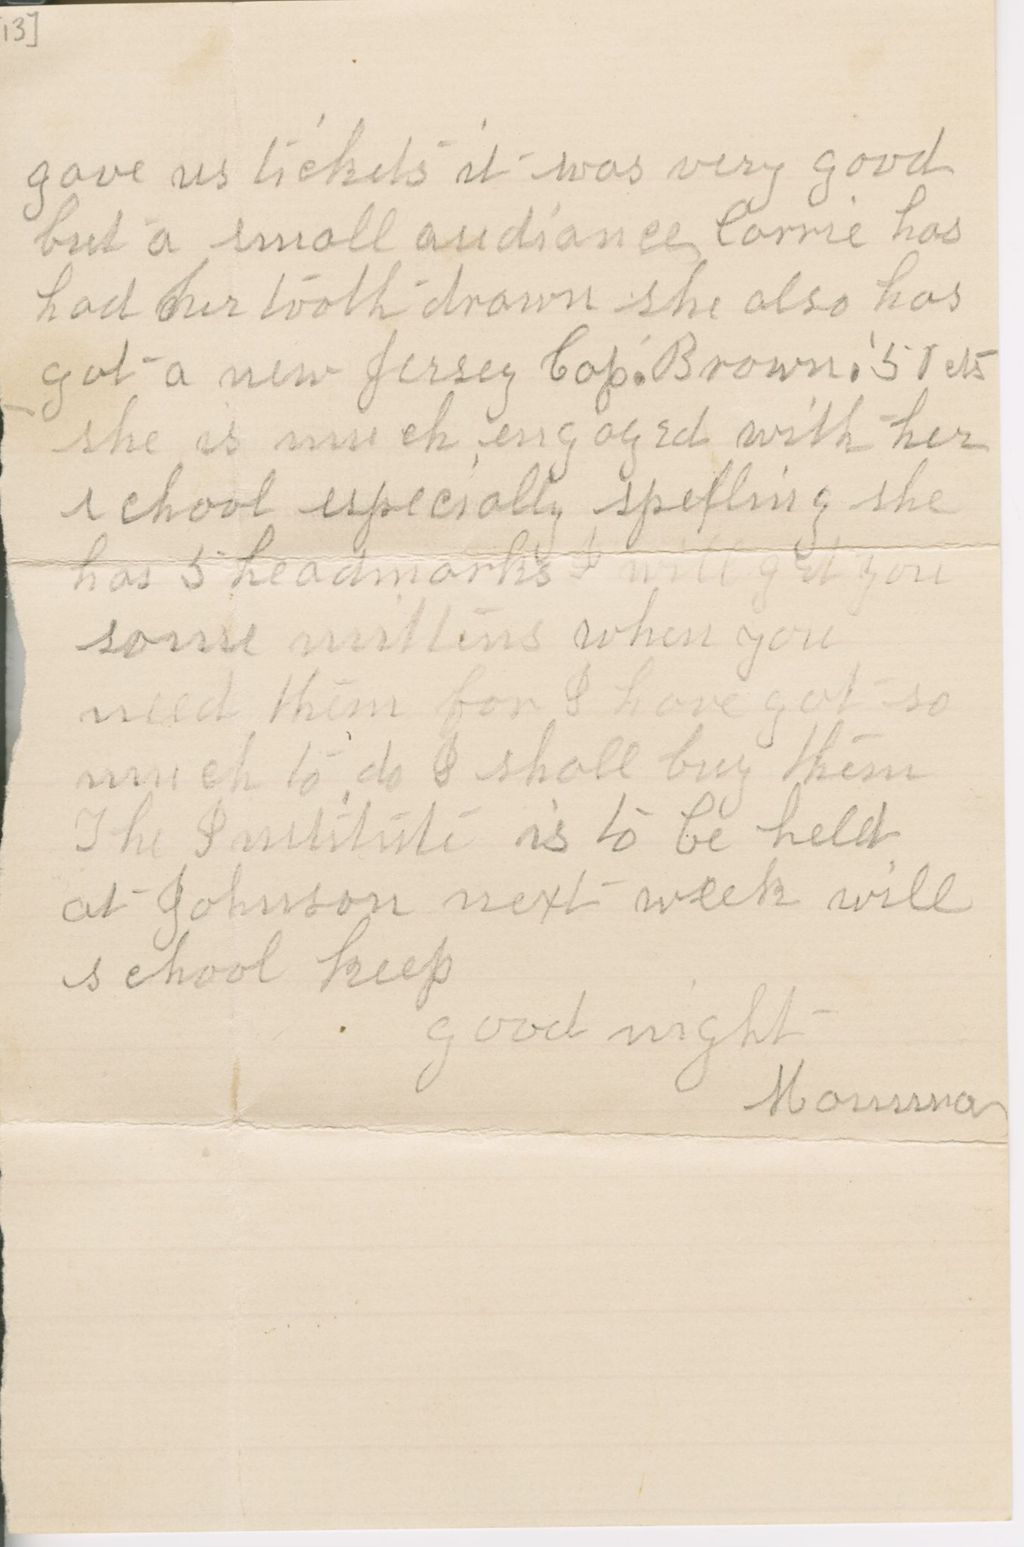 13]
gave us tickets it was very good
but a small audiance Carrie has
had her tooth drawn she also has
got a new Jersey Cap. Brown. 5 cts
she is much engaged with her
school especially spelling she
has 5 headmarks I will get you
some mittens when you
need them for I have got so
much to do I shall buy them
The Institute is to be held
at Johnson next week will
school keep
good night
Mamma